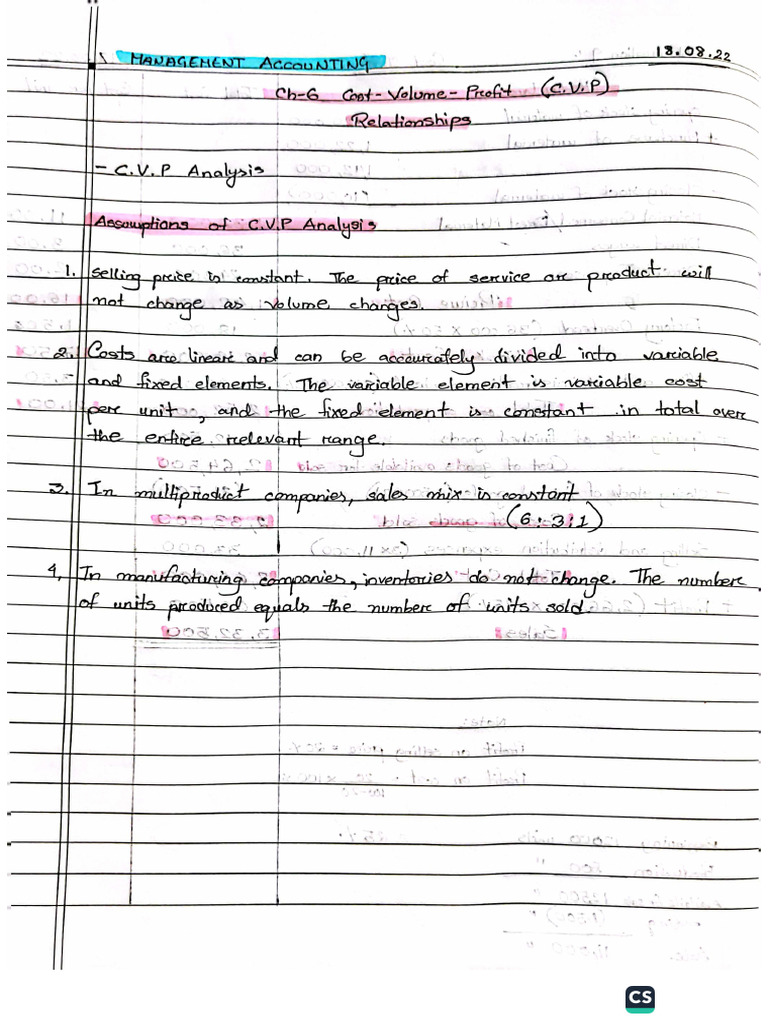 MANAGEMENT ACCOUNTING
18.08.22
Ch-6 Cost-Volume-Profit (C.V.P)
Relationships
- C.V.P Analysis
Assumptions of C.V.P Analysis
1. Selling price is constant. The price of service or product will
not change as volume changes.
2. Costs are linear and can be accurately divided into variable
and fixed elements. The variable element is variable cost
per unit, and the fixed element is constant in total over
the entire relevant range.
3. In multiproduct companies, sales mix is constant
(6:3:1)
4, In manufacturing companies, inventories do not change. The number
of units produced equals the number of units sold.
CS